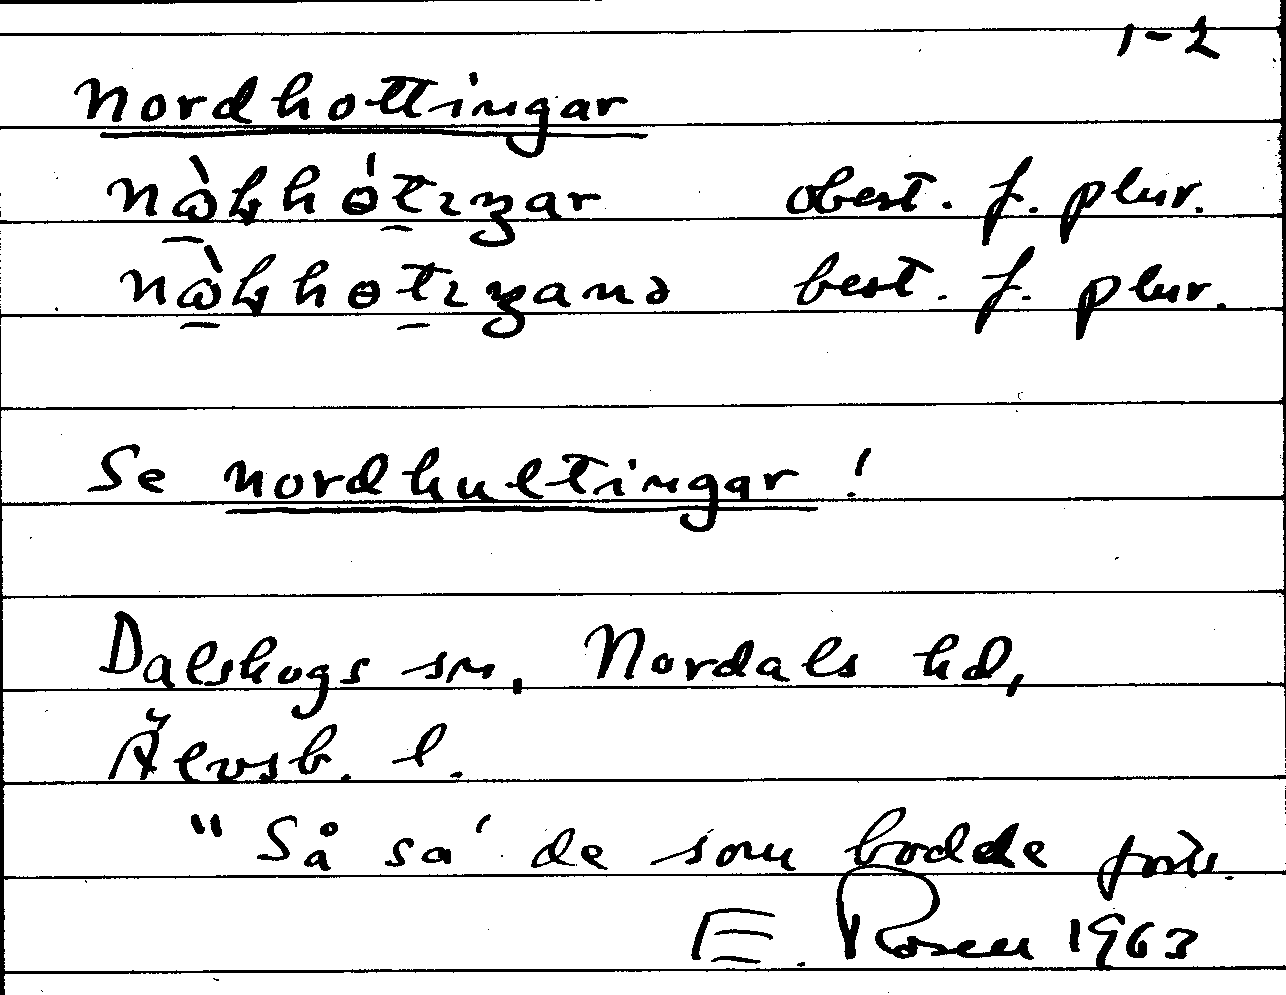 1-2
Nordhottingar
nɷ̀ꝁhɵ́tɪŋar obest. f. plur.
nɷ̀ꝁhɵtɪŋanə best. f. plur.
Se nordhultingar!
Dalskogs sn, Nordals hd,
Älvsb. l.
"Så sa' de som bodde forts.
E. Rosen 1963